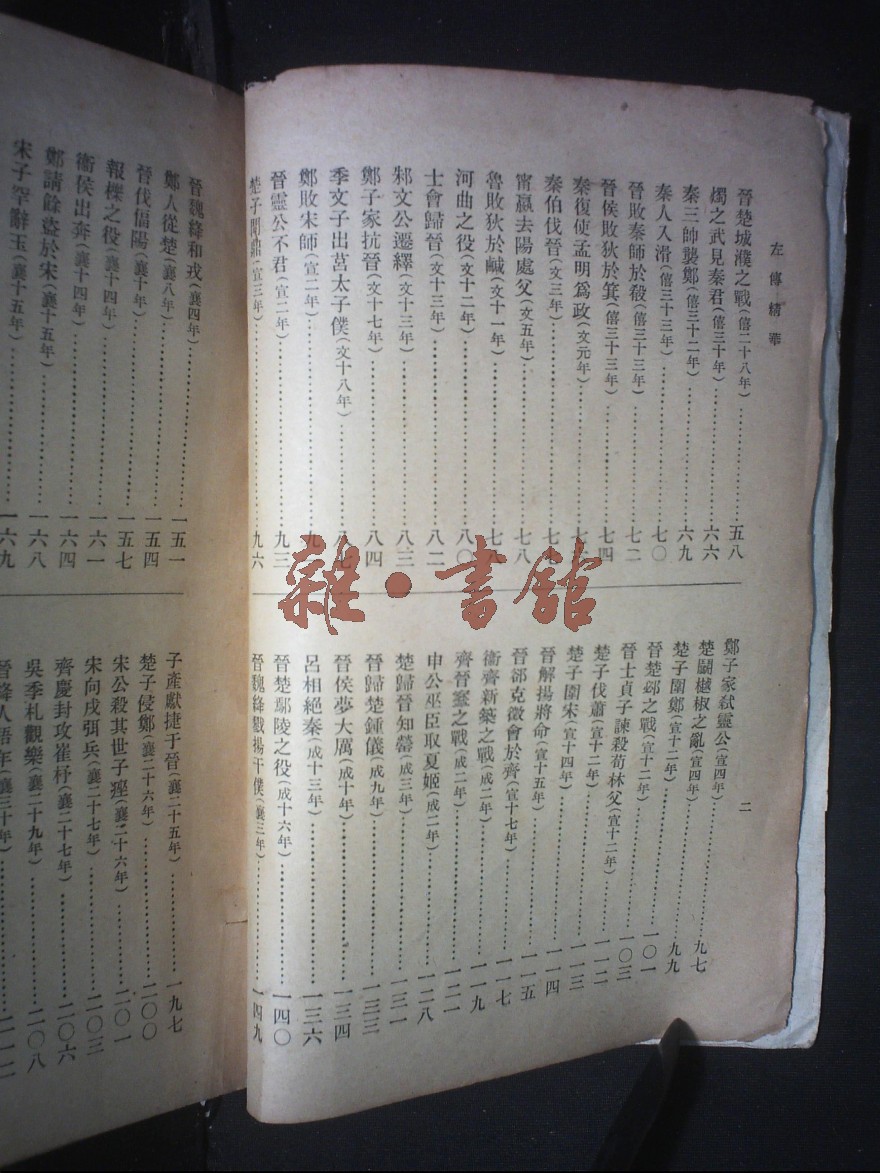 左傳精華
二
晉楚城濮之戰(僖二十八年)五八
燭之武見秦君(僖三十年)六六
秦三帥襲鄭(僖三十二年)六九
秦人入滑(僖三十三年)七〇
晉敗秦師於殽(僖三十三年)七二
晉侯敗狄於箕(僖三十三年)七四
秦復使孟明爲政(文元年)
秦伯伐晉(文三年)
甯嬴去陽處父(文五年)七八
魯敗狄於鹹(文十一年)
河曲之役(文十二年)八〇
士會歸晉(文十三年)八二
邾文公遷繹(文十三年)八三
鄭子家抗晉(文十七年)八四
季文子出莒太子僕(文十八年)
鄭敗宋師(宣二年)
晉靈公不君(宣二年)九三
楚子問鼎(宣三年)九六
鄭子家弒靈公(宣四年)九七
楚鬬樾椒之亂(宣四年)
楚子圍鄭(宣十二年)九九
晉楚邲之戰(宣十二年)一〇一
晉士貞子諫殺荀林父(宣十二年)一〇三
楚子伐蕭(宣十二年)一一二
楚子圍宋(宣十四年)一一三
晉解揚將命(宣十五年)一一四
晉郤克徵會於齊(宣十七年)一一五
衞齊新築之戰(成二年)一一七
齊晉鞌之戰(成二年)一一九
申公巫臣取夏姬(成二年)一二一
楚歸晉知罃(成三年)一二八
晉歸楚鍾儀(成九年)一三一
晉侯夢大厲(成十年)一三三
呂相絕秦(成十三年)一三四
晉楚鄢陵之役(成十六年)一三六
晉魏絳戮揚干僕(襄三年)一四〇
一四九
晉魏絳和戎(襄四年)一五一
鄭人從楚(襄八年)一五四
晉伐偪陽(襄十年)一五七
報櫟之役(襄十四年)一六一
衞侯出奔(襄十四年)一六四
鄭請餘盜於宋(襄十五年)一六八
宋子罕辭玉(襄十五年)一六九
子產獻捷于晉(襄二十五年)一九七
楚子侵鄭(襄二十六年)二〇〇
宋公殺其世子痤(襄二十六年)二〇一
宋向戌弭兵(襄二十七年)二〇三
齊慶封攻崔杼(襄二十七年)二〇六
吳季札觀樂(襄二十九年)二〇八
雜·書館